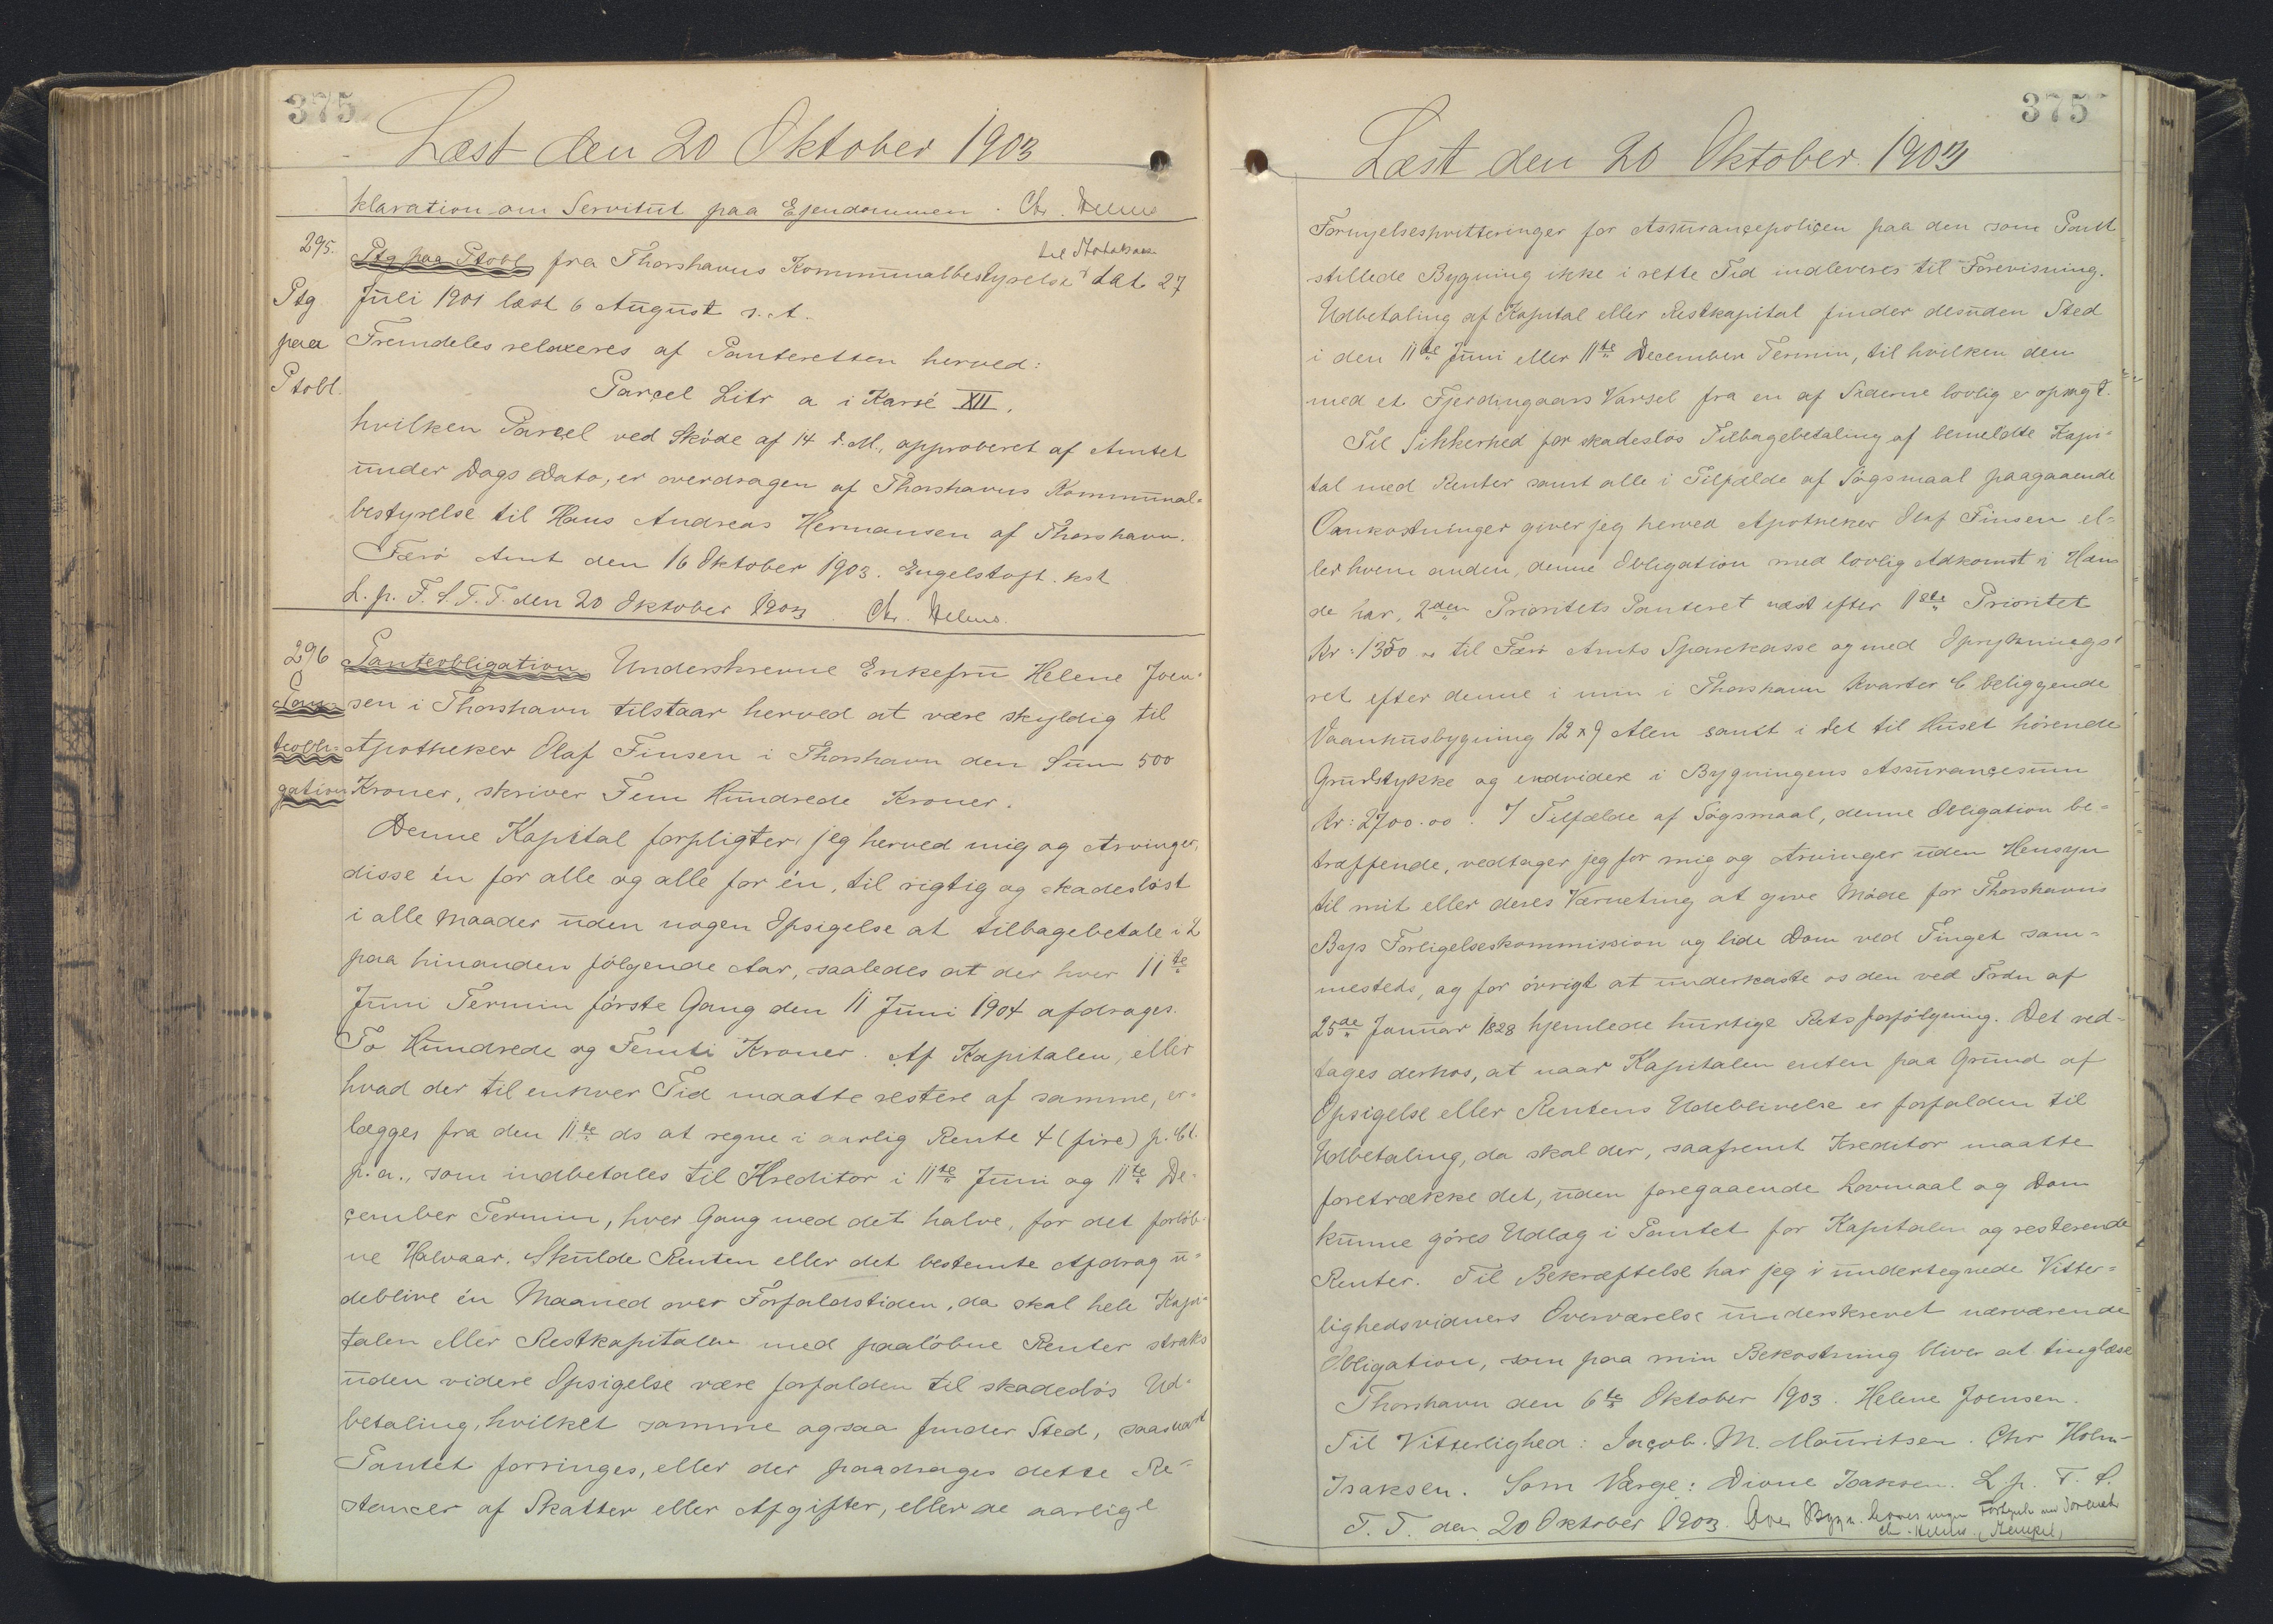 375
Læst den 20 Oktober 1903
klaration om Servitut paa Ejendommen. Chr.
295.
Ptg
paa
Ptobl.
Ptg paa Ptobl fra Thorshavns Kommunalbestyrelse til Statskas dat 27
Juli 1901 læst 6 August s. A.
Fremdeles relaxeres af Panteretten herved:
Parçel Litr a i Karré XII.
hvilken Parçel ved Skøde af 14 d. M., approberet af Amtet
under Dags Dato, er overdragen af Thorshavns Kommunal=
bestyrelse til Hans Andreas Hermansen af Thorshavn.
Færø Amt den 16 Oktober 1903. Engelstoft. kst
L. p. F. S. T. T. den 20 Oktober 1903. Chr.
296
Pan-
teobli=
gation
Panteobligation. Underskrevne Enkefru Helene Joen-
sen i Thorshavn tilstaar herved at være skyldig til
Apotheker Olaf Finsen i Thorshavn den Sum 500
Kroner, skriver Fem Hundrede Kroner.
Denne Kapital forpligter jeg herved mig og Arvinger,
disse én for alle og alle for én, til rigtig og skadesløst
i alle Maader uden nogen Opsigelse at tilbagebetale i 2
paa hinanden følgende Aar, saaledes at der hver 11te
Juni Termin første Gang den 11 Juni 1904 afdrages.
To Hundrede og Femti Kroner. Af Kapitalen, eller
hvad der til enhver Tid maatte restere af samme, er-
lægges fra den 11te ds at regne i aarlig Rente 4 (fire) p. Ct.
p. a., som indbetales til Kreditor i 11te Juni og 11te De-
çember Termin, hver Gang med det halve, for det forløb-
ne Halvaar. Skulde Renten eller det bestemte Afdrag u-
deblive én Maaned over Forfaldstiden, da skal hele Kapi-
talen eller Restkapitalen med paaløbne Renter straks
uden videre Opsigelse være forfalden til skadesløs Ud-
betaling, hvilket samme ogsaa finder Sted, saasnart
Pantet forringes, eller der paadrages dette Re-
stancer af Skatter eller Afgifter, eller de aarlige
375
Læst den 20 Oktober 1903
Fornyelseskvitteringer for Assurançepoliçen paa den som Pant
stillede Bygning ikke i rette Tid indleveres til Forevisning.
Udbetaling af Kapital eller Restkapital finder desuden Sted
i den 11te Juni eller 11te December Termin, til hvilken den
med et Fjerdingaars Varsel fra en af Siderne lovlig er opsagt.
Til Sikkerhed for skadesløs Tilbagebetaling af bemeldte Kapi-
tal med Renter samt alle i Tilfælde af Søgsmaal paagaaende
Omkostninger giver jeg herved Apotheker Olaf Finsen el-
ler hvem anden, denne Obligation med lovlig Adkomst i Hæn
de har, 2den Prioritets Panteret næst efter 1ste Prioritet
Kr: 1350 „ til Færø Amts Sparekasse og med Opryknings
ret efter denne i min i Thorshavn Kvarter C beliggende
Vaanhusbygning 12 x 9 Alen samt i det til Huset hørende
Grundstykke og endvidere i Bygningens Assurançesum
Kr: 2700.00. I Tilfælde af Søgsmaal, denne Obligation be=
træffende, vedtager jeg for mig og Arvinger uden Hensyn
til mit eller deres Værneting at give Møde for Thorshavns
Byes Forligelseskommission og lide Dom ved Tinget sam=
mesteds, og for øvrigt at underkaste os den ved Frdn af
25de Januar 1828 hjemlede hurtige Retsforfølgning. Det ved-
tages derhos, at naar Kapitalen enten paa Grund af
Opsigelse eller Rentens Udeblivelse er forfalden til
Udbetaling, da skal der, saafremt Kreditor maatte
foretrække det, uden foregaaende Lovmaal og Dom
kunne gøres Udlæg i Pantet for Kapitalen og resterende
Renter. Til Bekræftelse har jeg i undertegnede Vitter=
lighedsvidners Overværelse underskrevet nærværende
Obligation, som paa min Bekostning bliver at tinglæse
Thorshavn den 6te Oktober 1903. Helene Joensen.
Til Vitterlighed: Jaçob. M. Mouritsen. Chr Holm-
Isaksen. Som Værge: Dione Isaksen. L. p. F. S.
T. T. den 20 Oktober 1903.